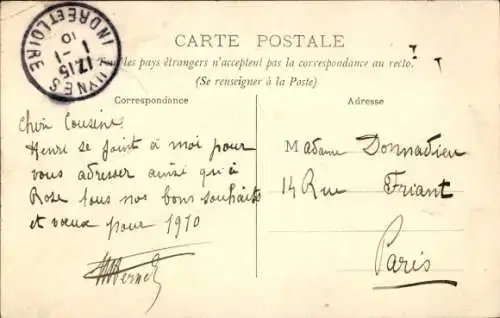 INDRE ET LOIRE
17.15
1 -1
10
CARTE POSTALE
Tous les pays étrangers n'acceptent pas la correspondance au recto.
(Se renseigner à la Poste)
Correspondance
Chère Cousine
Henri se joint à moi pour
vous adresser ainsi qu'à
Rose tous nos bons souhaits
et vœux pour 1910
Adresse
Madame Donnadieu
14 Rue Friant
Paris